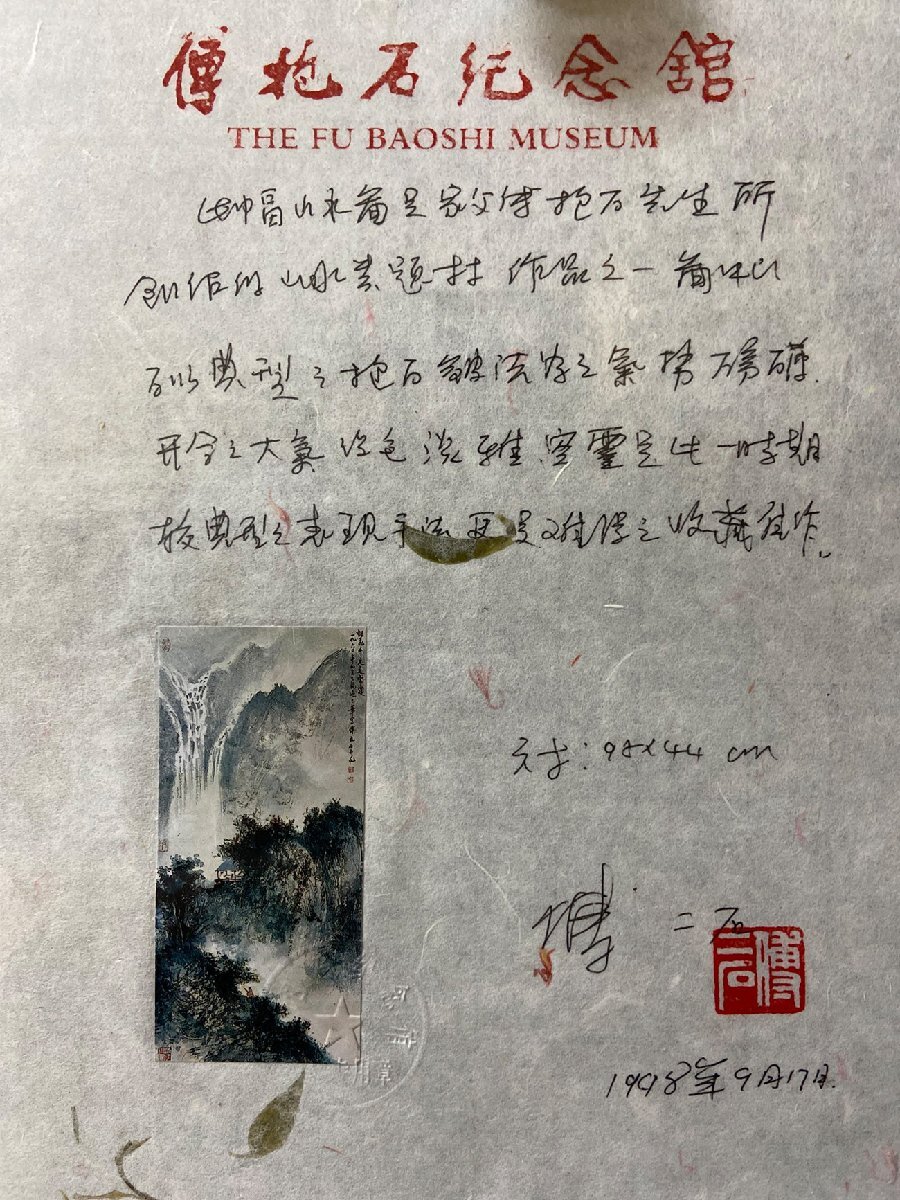 傅抱石纪念舘
THE FU BAOSHI MUSEUM
此幅山水畵是家父傅抱石先生所
创作的山水类题材作品之一
典型之抱石皴法 之氣势磅礴
开合之大氣设色淡雅空靈是此一时期
较典型之表现手法更是难得之收藏佳作。
尺寸：98x44 cm
傅二石
傅二石
1998年9月17日.